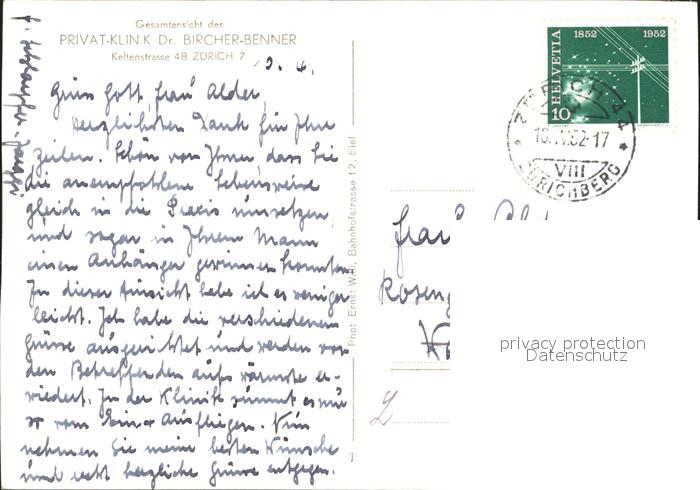 Gesamtansicht der
PRIVAT-KLINIK Dr. BIRCHER-BENNER
Keltenstrasse 48 ZÜRICH 7
Grüss Gott, Frau Alder,
Herzlichsten Dank für Ihre
Zeilen. Schön von Ihnen, dass Sie
die anempfohlene Lebensweise
gleich in die Praxis umsetzen
und sogar in Ihrem Mann
einen Anhänger gewinnen konnten.
In dieser Hinsicht habe ich es weniger
leicht. Ich habe die verschiedenen
Grüsse ausgerichtet und werden von
den Betreffenden aufs wärmste er-
widert. In der Klinik summt es nur
so vom Ein- + Ausfliegen. Nun
nehmen Sie meine besten Wünsche
und recht herzliche Grüsse entgegen.
Phot. Ernst Wifli, Bahnhofstrasse 12,
HELVETIA
1852 1952
10
ZÜRICH 44
VIII
ZÜRICHBERG
Frau
Roseng
privacy protection
Datenschutz